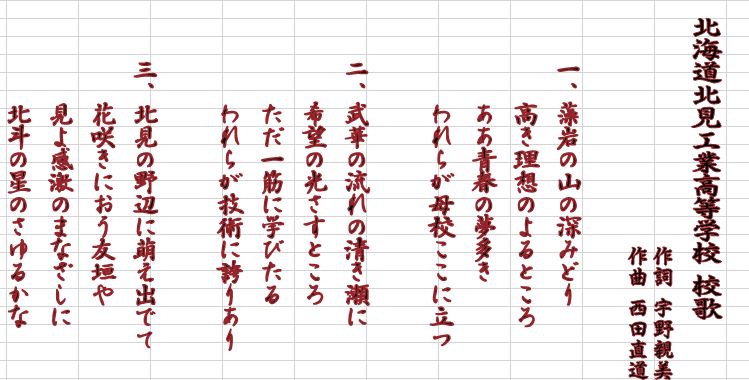 北海道北見工業高等学校 校歌
作詞 宇野親美
作曲 西田直道
一、藻岩の山の深みどり
高き理想のよるところ
ああ青春の夢多き
われらが母校ここに立つ
二、武華の流れの清き瀬に
希望の光さすところ
ただ一筋に学びたる
われらが技術に誇りあり
三、北見の野辺に萌え出でて
花咲きにおう友垣や
見よ感激のまなざしに
北斗の星のさゆるかな